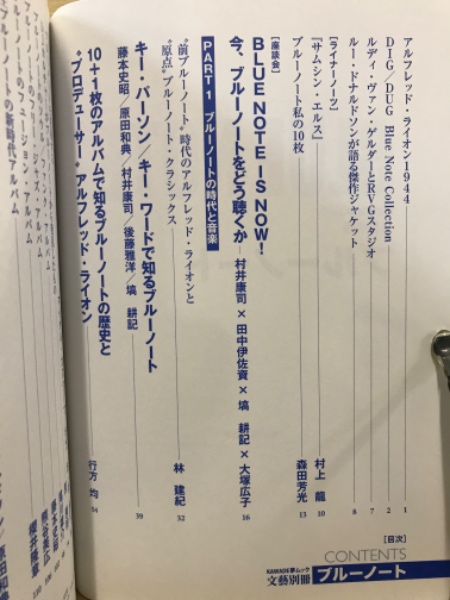 KAWADE夢ムック
文藝別冊
ブルーノート
CONTENTS
[目次]
アルフレッド・ライオン1944 1
DIG/DUG Blue Note Collection 2
ルディ・ヴァン・ゲルダーとRVGスタジオ 7
ルー・ドナルドソンが語る傑作ジャケット 8
[ライナーノーツ]
『サムシン・エルス』 村上 龍 10
ブルーノート私の10枚 森田芳光 13
[座談会]
BLUE NOTE IS NOW!
今、ブルーノートをどう聴くか 村井康司×田中伊佐資×塙 耕記×大塚広子 16
PART 1 ブルーノートの時代と音楽
“前ブルーノート”時代のアルフレッド・ライオンと
“原点”ブルーノート・クラシックス 林 建紀 32
キー・パーソン/キー・ワードで知るブルーノート
藤本史昭/原田和典/村井康司/後藤雅洋/塙 耕記 39
10+1枚のアルバムで知るブルーノートの歴史と
“プロデューサー”アルフレッド・ライオン 行方 均 54
ブルーノートの新時代アルバム